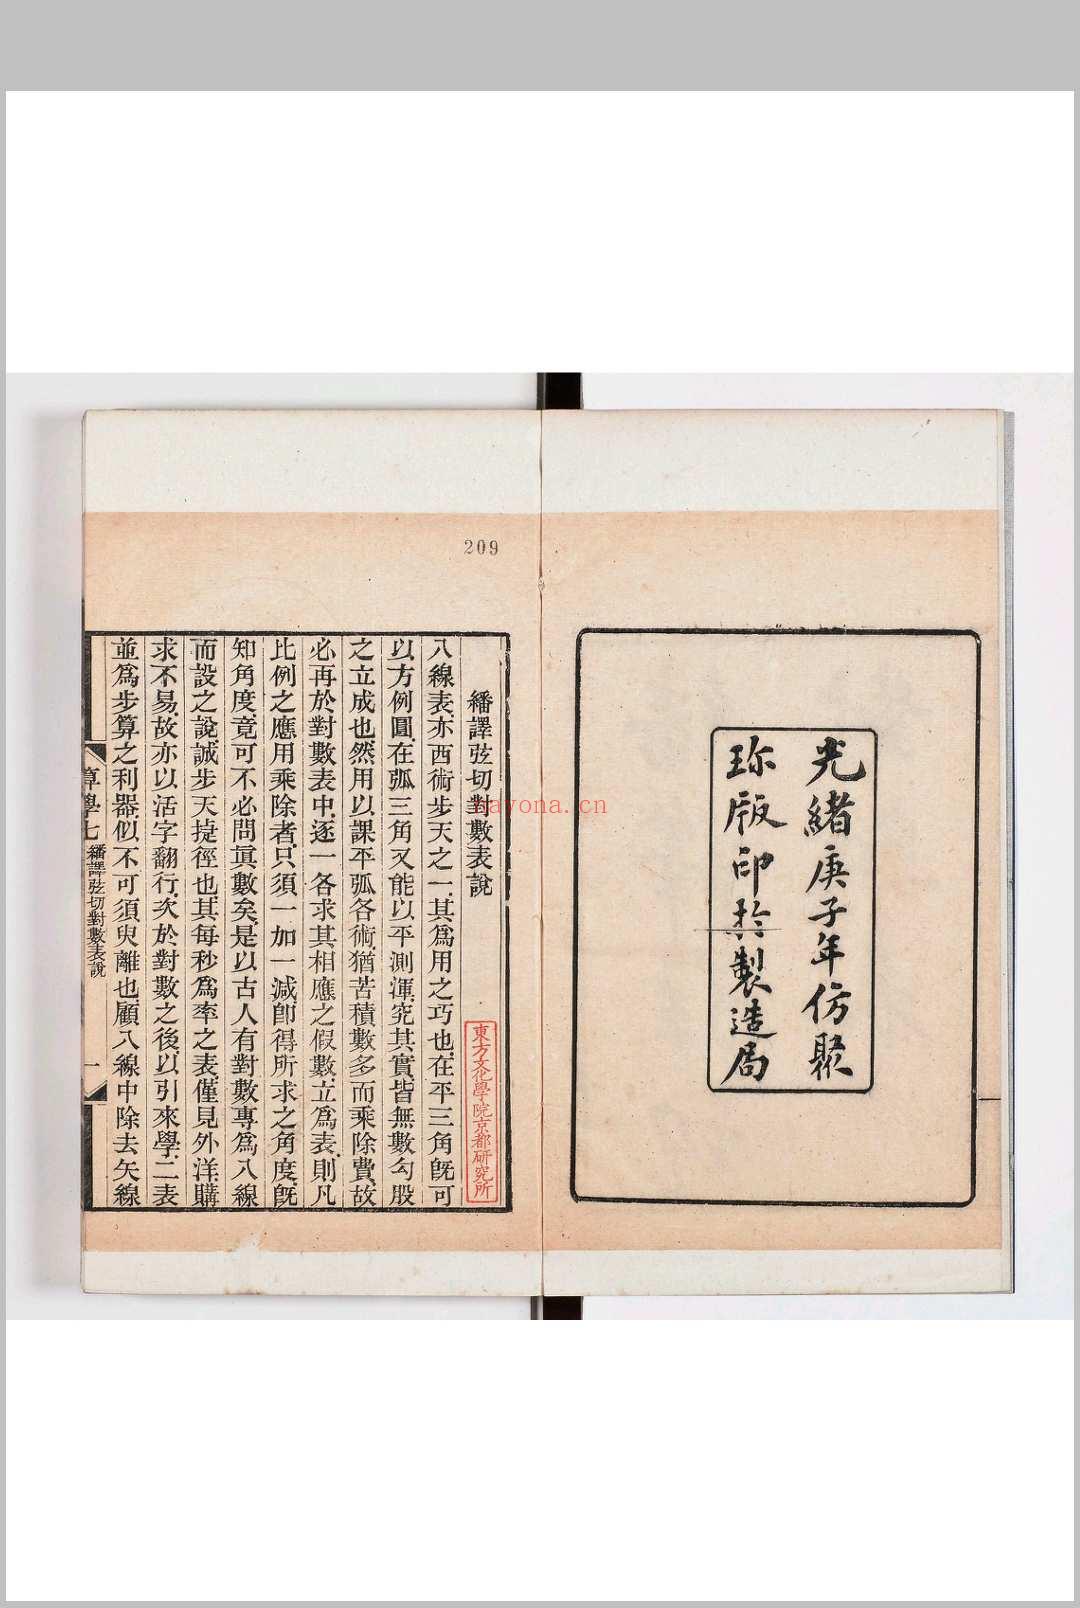 光緒庚子年仿聚
珍版印於製造局
209
繙譯弦切對數表說
八線表亦西術步天之一其爲用之巧也在平三角旣可
以方例圓在弧三角又能以平測渾究其實皆無數勾股
之立成也然用以課平弧各術猶苦積數多而乘除費故
必再於對數表中逐一各求其相應之假數立爲表則凡
比例之應用乘除者只須一加一減卽得所求之角度旣
知角度竟可不必問眞數矣是以古人有對數專爲八線
而設之說誠步天捷徑也其每秒爲率之表僅見外洋購
求不易故亦以活字翻行次於對數之後以引來學二表
並爲步算之利器似不可須臾離也顧八線中除去矢線
算學七 繙譯弦切對數表說 一
東方文化學院京都研究所
nayona.cn